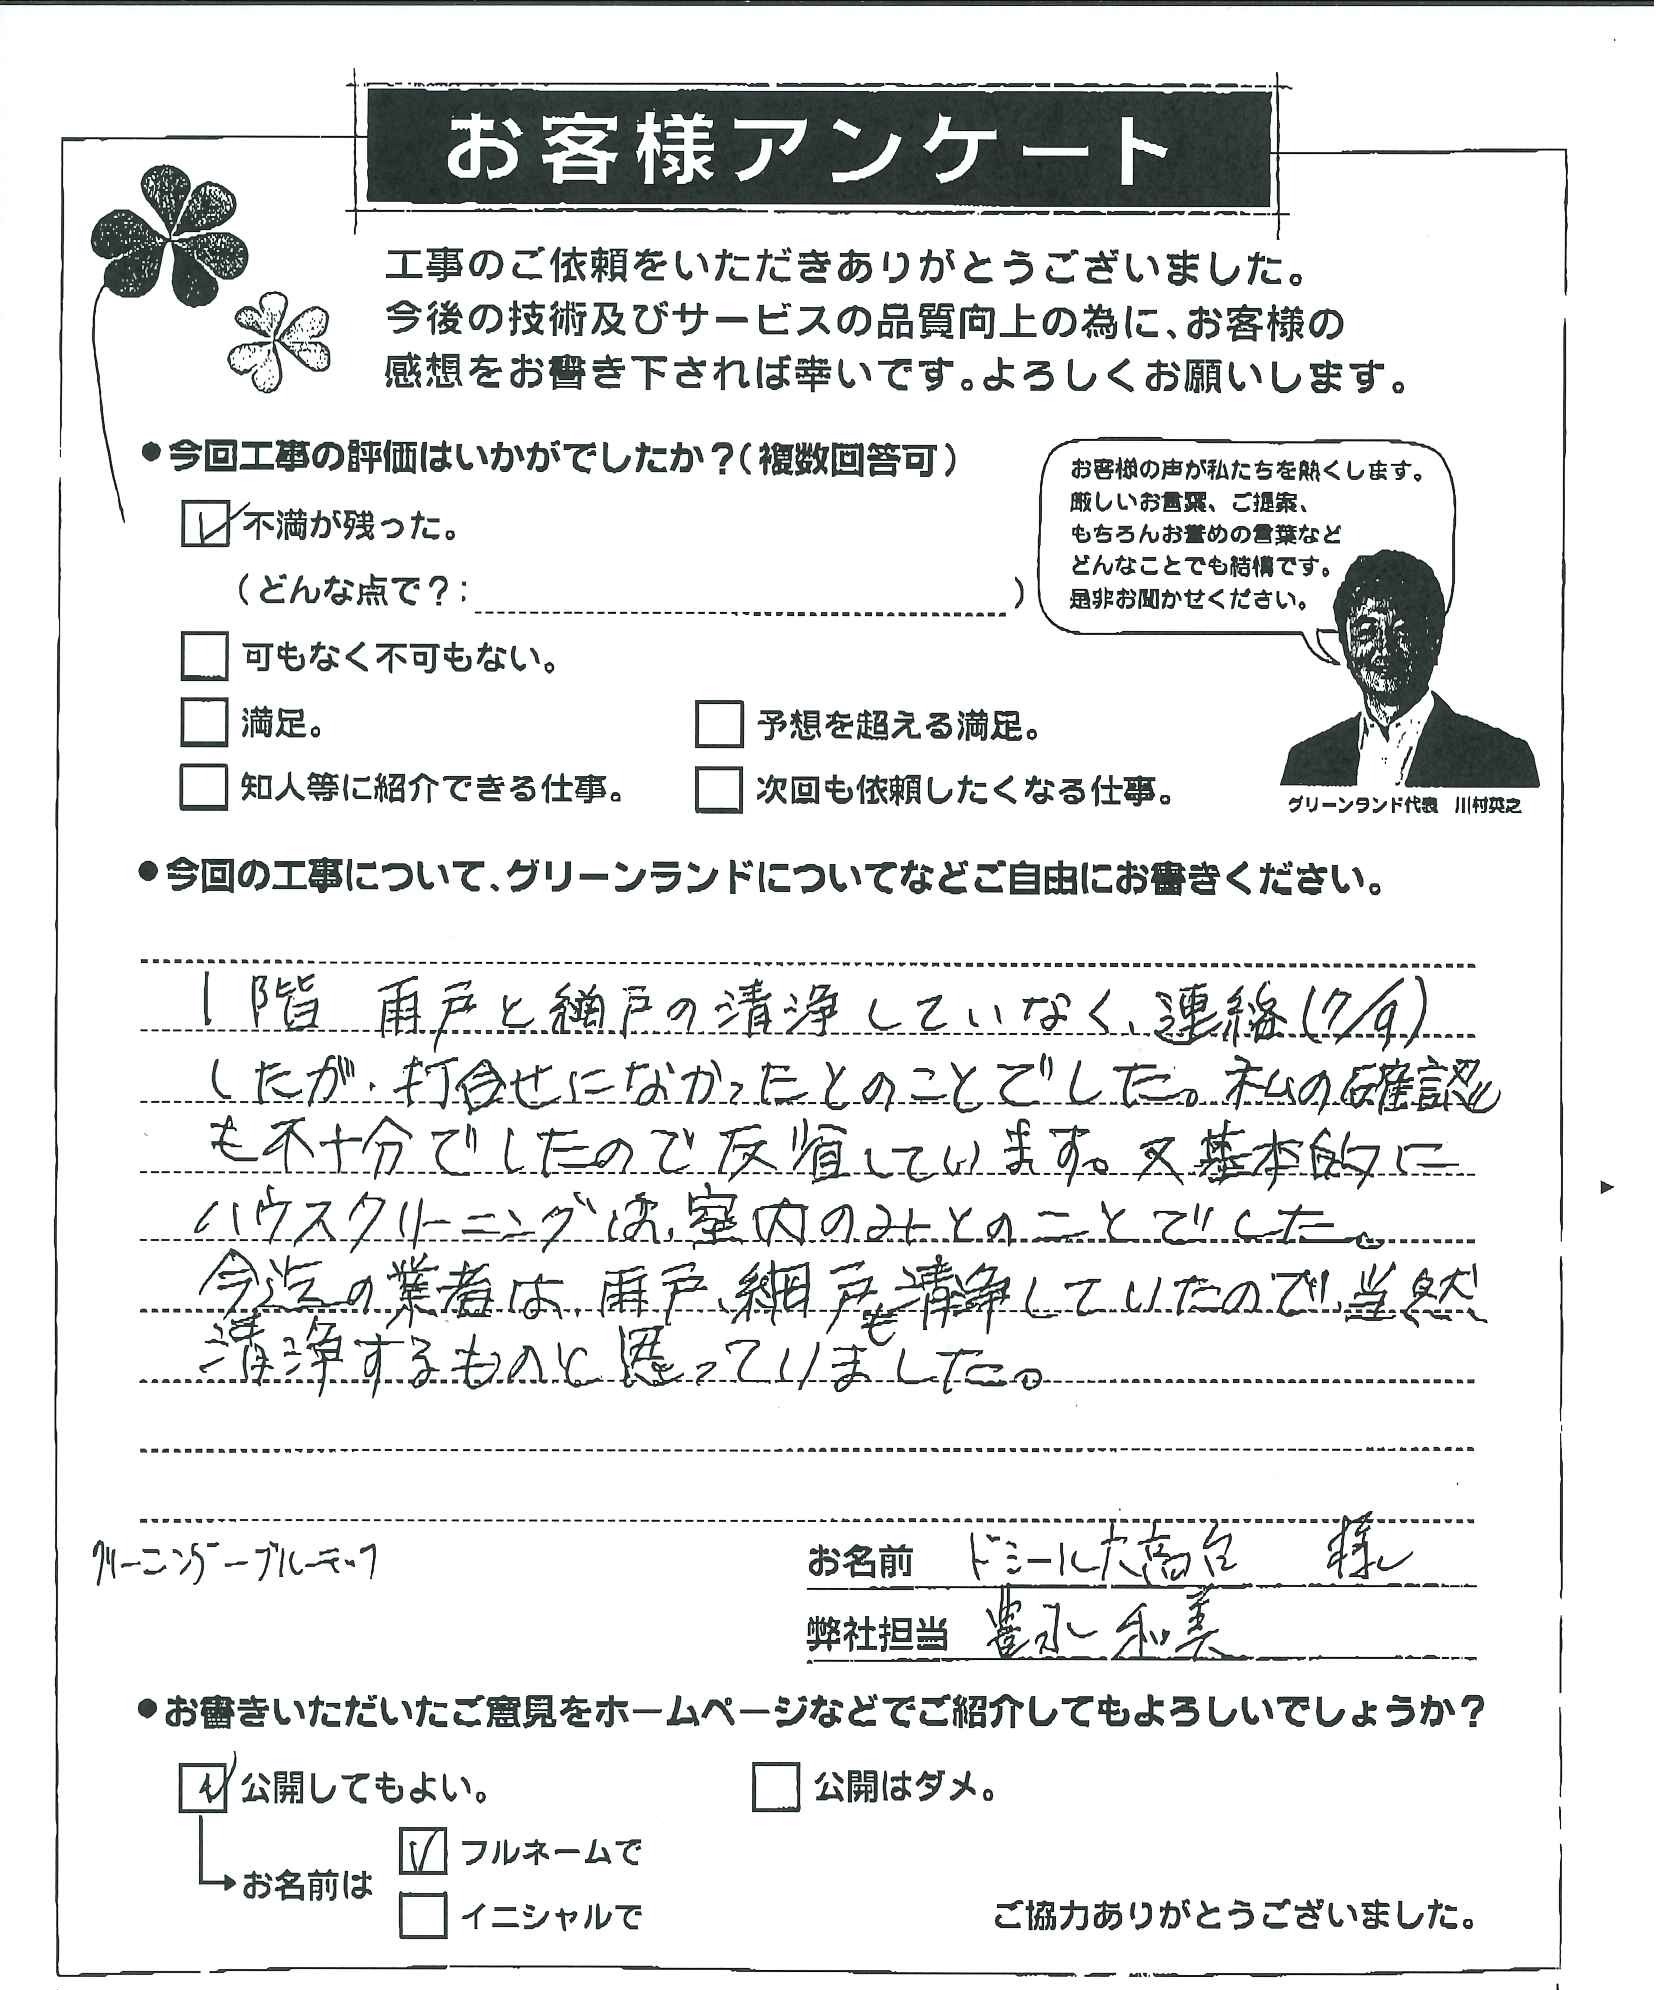 お客様アンケート
工事のご依頼をいただきありがとうございました。
今後の技術及びサービスの品質向上の為に、お客様の
感想をお書き下されば幸いです。よろしくお願いします。
●今回工事の評価はいかがでしたか？（複数回答可）
お客様の声が私たちを熱くします。
厳しいお言葉、ご提案、
もちろんお誉めの言葉など
どんなことでも結構です。
是非お聞かせください。
不満が残った。
（どんな点で？：　）
可もなく不可もない。
満足。
予想を超える満足。
知人等に紹介できる仕事。
次回も依頼したくなる仕事。
グリーンランド代表　川村英之
●今回の工事について、グリーンランドについてなどご自由にお書きください。
1階 雨戸と網戸の清浄していなく、連絡(7/9)
したが、打合せになかったとのことでした。私の確認
も不十分でしたので反省しています。又基本的に
ハウスクリーニングは、室内のみとのことでした。
今迄の業者は、雨戸、網戸も清浄していたので、当然
清浄するものと思っていました。
クリーニング
お名前 ドミール大高台 様
弊社担当 豊永 和美
●お書きいただいたご意見をホームページなどでご紹介してもよろしいでしょうか？
公開してもよい。
公開はダメ。
お名前は
フルネームで
イニシャルで
ご協力ありがとうございました。